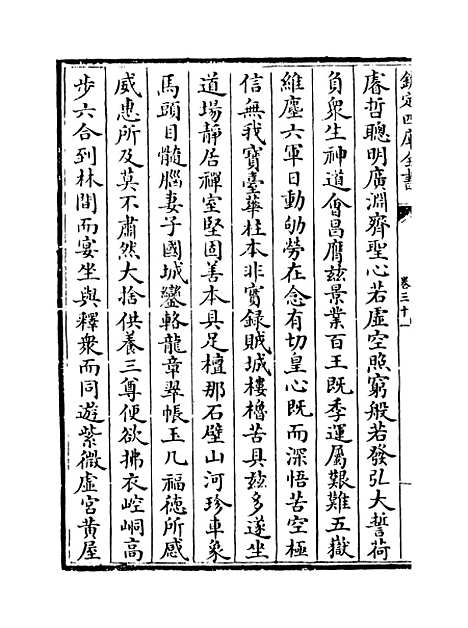 欽定四庫全書
卷三十
睿哲聰明廣淵齊聖心若虛空照窮般若發弘大誓荷
負衆生神道會昌膺兹景業百王既季運屬艱難五嶽
維塵六軍日動劬勞在念有切皇心既而深悟苦空極
信無我寶臺華柱本非寳録賊城樓櫓苦具兹多遂坐
道場静居禪室堅固善本具足檀那石壁山河珍車象
馬頭目髓腦妻子國城鑾輅龍章翠帳玉几福徳所感
威惠所及莫不肅然大捨供養三尊便欲拂衣崆峒高
步六合到林間而宴坐與釋衆而同遊紫微虛宫黄屋